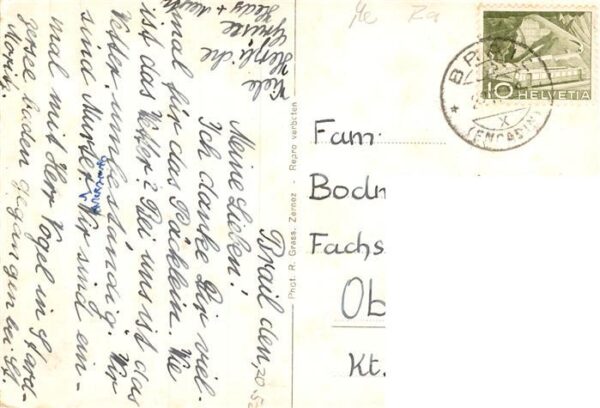 Brail den, 20.
Meine Lieben!
Ich danke Dir viel-
mal für das Päcklein. Wie
ist das Wetter? Bei uns ist das
Wetter unbeständig. Wir
sind Munter. Wir sind ein-
mal mit Herr Vogel in Stard-
zersee baden gegangen bei St.
Moritz.
Viele
Herzliche
Grüsse
Phot. R. Grass, Zernez. - Repro verboten
10 HELVETIA
BRAIL
(ENGADIN)
Fam
Bodn
Fachs
Ob
Kt.